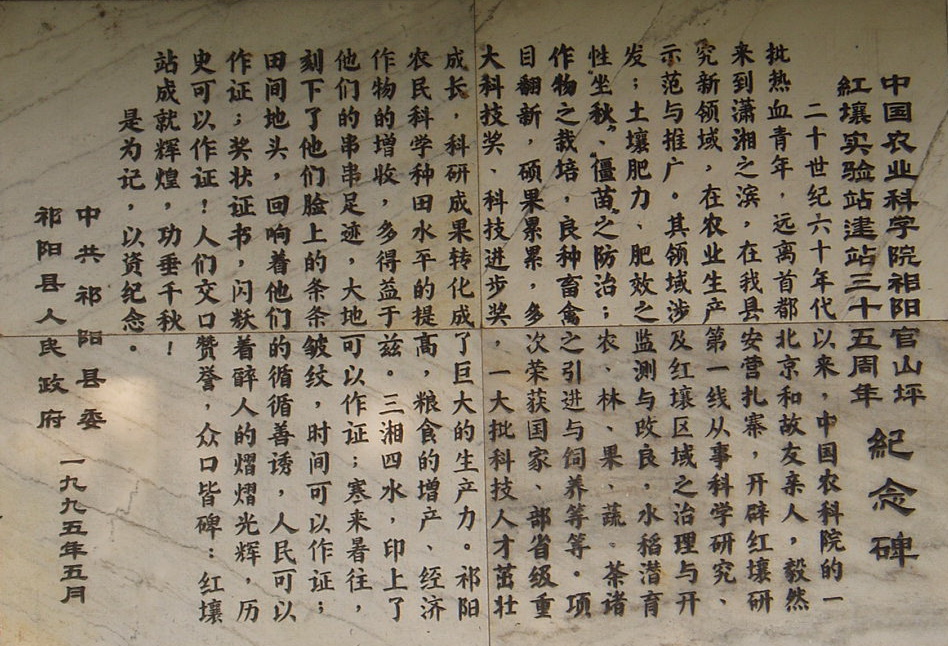 中国农业科学院祁阳官山坪
紅壤实验站建站三十五周年
紀念碑
二十世纪六十年代以来,中国农科院的一
批热血青年,远离首都北京和故友亲人,毅然
来到潇湘之滨,在我县安营扎寨,开辟红壤研
究新领域,在农业生产第一线从事科学研究、
示范与推广。其领域涉及红壤区域之治理与开
发;土壤肥力、肥效之监测与改良,水稻潜育
性“坐秋”、“僵苗”之防治;农、林、果、蔬、茶诸
作物之栽培,良种畜禽之引进与饲养等等。项
目翻新,硕果累累,多次荣获国家、部省级重
大科技奖、科技进步奖,一大批科技人才茁壮
成长,科研成果转化成了巨大的生产力。祁阳
农民科学种田水平的提高,粮食的增产、经济
作物的增收,多得益于兹。三湘四水,印上了
他们的串串足迹,大地可以作证;寒来暑往,
刻下了他们脸上的条条皱纹,时间可以作证;
田间地头,回响着他们的循循善诱,人民可以
作证;奖状证书,闪烁着醉人的熠熠光辉,历
史可以作证!人们交口赞誉,众口皆碑:红壤
站成就辉煌,功垂千秋!
是为记,以资纪念。
中共祁阳县委
祁阳县人民政府
一九九五年五月